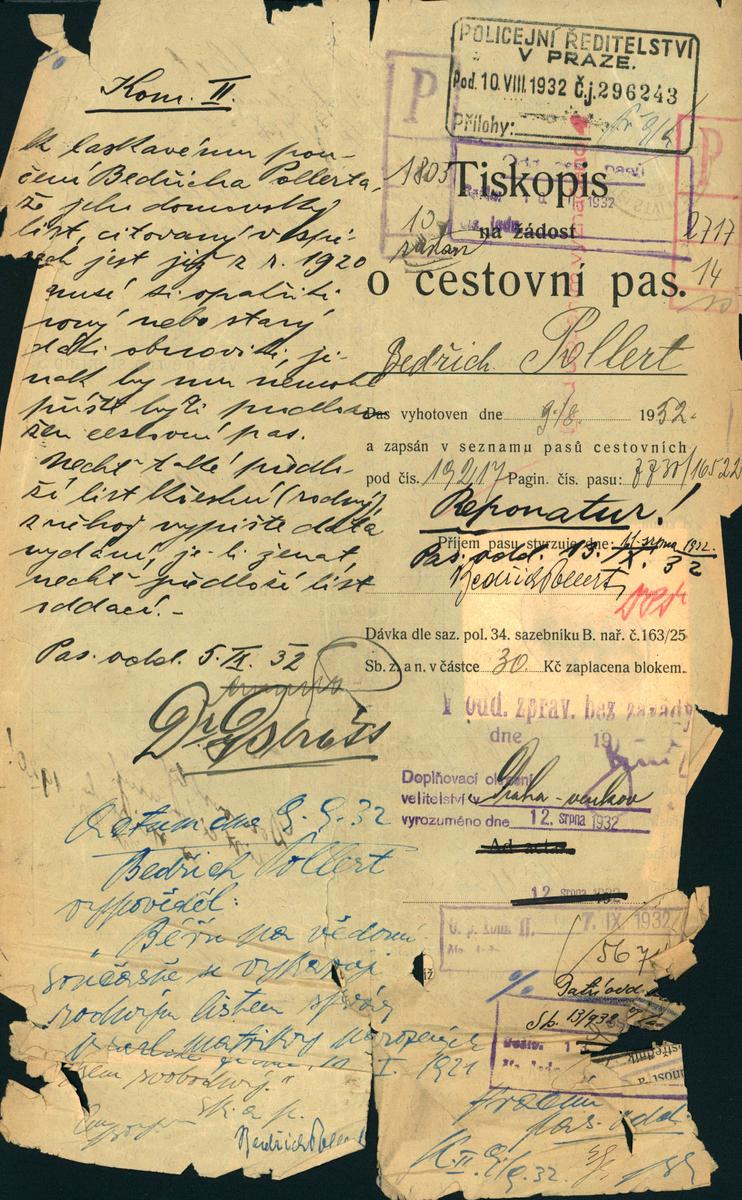 Kom. II.
K laskavému pou-
čení Bedřicha Pollerta,
že jeho domovský
list, citovaný v spi-
sech jest již z r. 1920
musí si opatřiti
nový nebo starý
dáti obnoviti, ji-
nak by mu nemohl
příště býti prodlou-
žen cestovní pas.
Nechť také předlo-
ží list křestní (rodný)
z něhož vypište data
vydání, je-li ženat,
nechť předloží list
oddací.-
Pas. odd. 5. IX. 32
Retum dne 9. 9. 32
Bedřich Pollert
vypověděl:
„Béřu na vědomí
současně se vykazuji
rodným listem
matriky narozených
I. 1921
jsem svobodný."
Sk. a p.
Bedřich Pollert
POLICEJNÍ ŘEDITELSTVÍ
V PRAZE.
Pod. 10. VIII. 1932 č.j. 296243
Přílohy:
P
P
1803
10
2717
14
1932
Tiskopis
na žádost
o cestovní pas.
Bedřich Pollert
Pas vyhotoven dne 9/8 1932
a zapsán v seznamu pasů cestovních
pod čís. 19217 Pagin. čís. pasu: 8830/16522
Reponatur!
Příjem pasu stvrzuje dne: srpna 1932.
Pas. odd. 13. X. 32
Bedřich Pollert
Dávka dle saz. pol. 34. sazebníku B. nař. č. 163/25
Sb. z. a n. v částce 30. Kč zaplacena blokem.
V oud. zprav. bez závady
dne 19
Doplňovací okresní
velitelství v Praha-venkov
vyrozuměno dne 12. srpna 1932
Ad acta
12 srpna 1932
G. p. kom. II. 7. IX 1932
567
Sb. 13/932
pas. odd.
K. II. 9/9. 32.